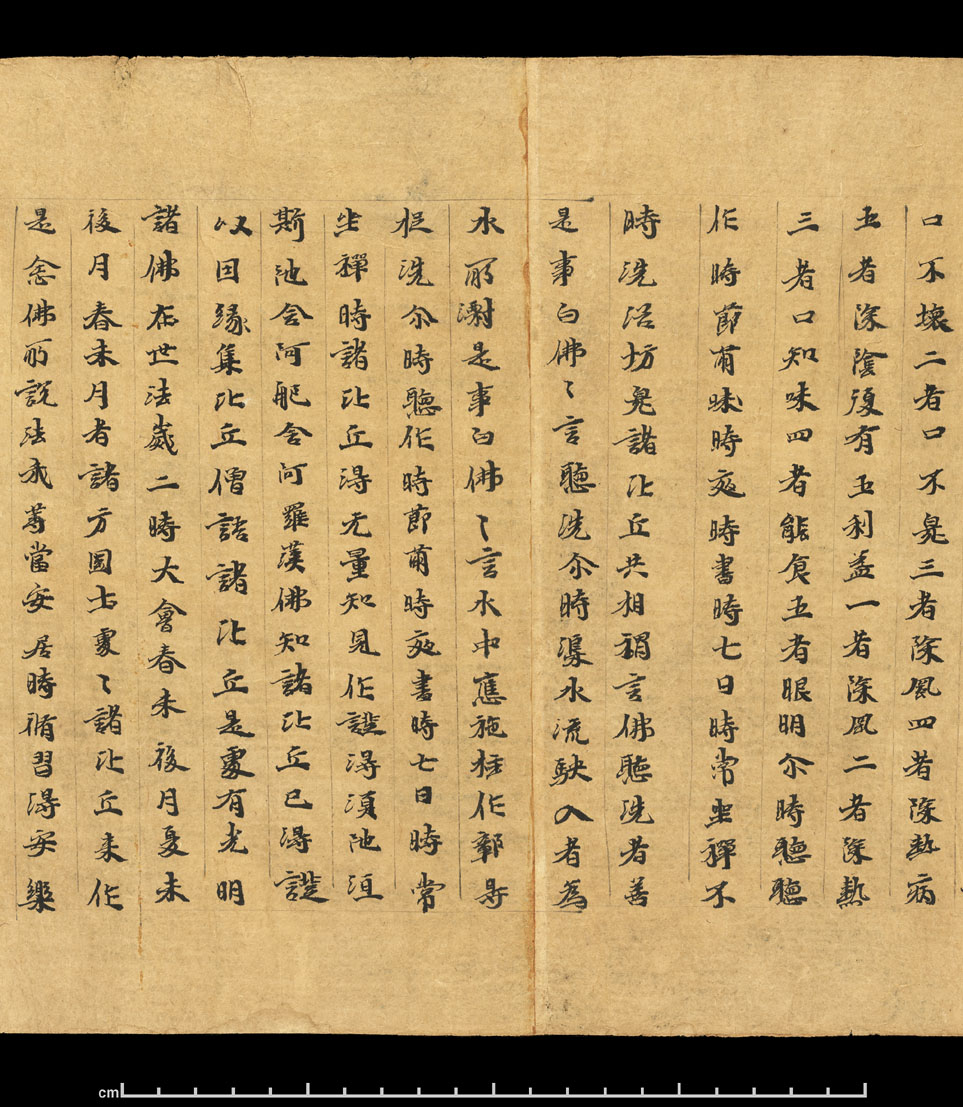 口不壞二者口不臰三者除風四者除熱病
五者除陰復有五利益一者除風二者除熱
三者口知味四者能食五者眼明尒時聽聽
作時節前味時夜時書時七日時常坐禪不
時洗浴坊臰諸比丘共相謂言佛聽洗者善
是事白佛〻言聽洗尒時水流駃入者為
水所是事白佛〻言水中應施柱作鄣㝵
洗尒時聽作時節前時夜書時七日時常
坐禪時諸比丘得无量知見作證得湏陁洹
斯陁含阿那含阿羅漢佛知諸比丘已得證
以因緣集比丘僧語諸比丘是處有光明
諸佛在世法歲二時大會春末後月夏末
後月春末月者諸方國土處〻諸比丘来作
是念佛所說法我等當安居時脩習得安樂
cm